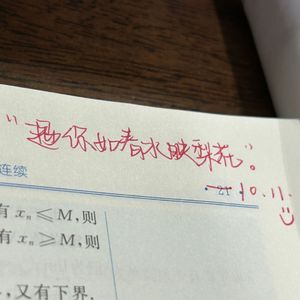 "遇你如春水映梨花"。
连续
· 21 ·
—10.11.
有 xₙ ⩽ M,则
有 xₙ ⩾ M,则
,又有下界.